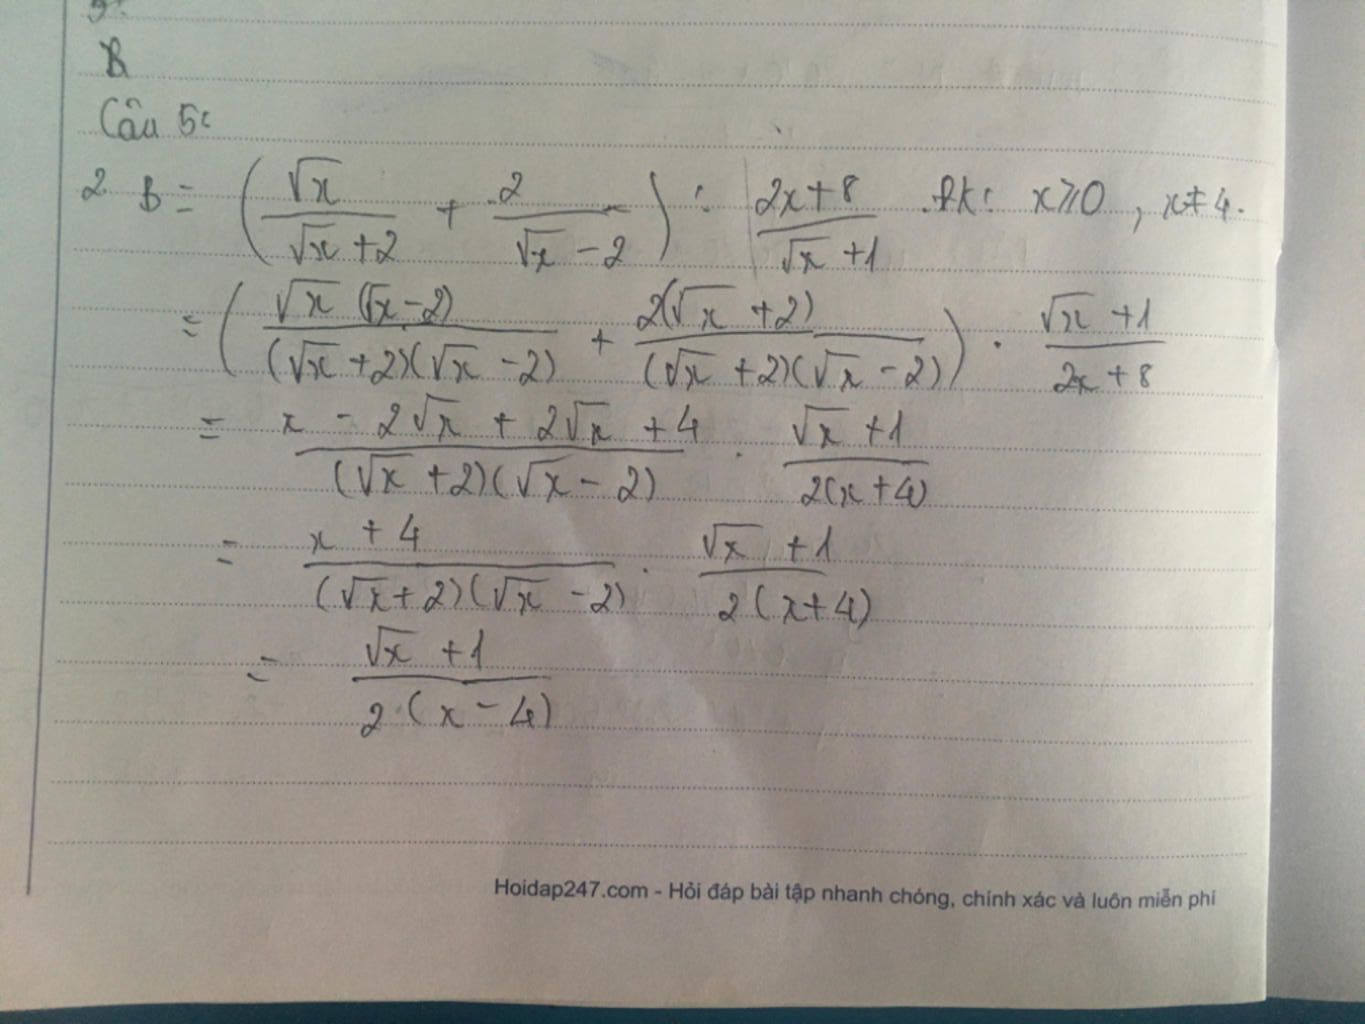 B
Câu 5:
2 B = (√x/(√x + 2) + 2/(√x - 2)) : (2x + 8)/(√x + 1) Đk: x ⩾ 0, x ≠ 4.
= (√x(√x - 2)/((√x + 2)(√x - 2)) + 2(√x + 2)/((√x + 2)(√x - 2))) . (√x + 1)/(2x + 8)
= (x - 2√x + 2√x + 4)/((√x + 2)(√x - 2)) . (√x + 1)/(2(x + 4))
= (x + 4)/((√x + 2)(√x - 2)) . (√x + 1)/(2(x + 4))
= (√x + 1)/(2.(x - 4))
Hoidap247.com - Hỏi đáp bài tập nhanh chóng, chính xác và luôn miễn phí